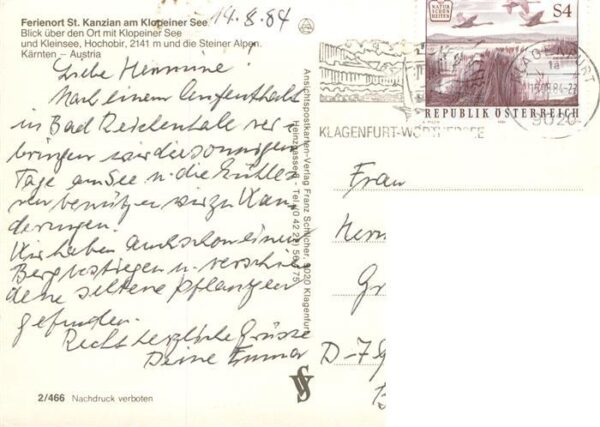 Ferienort St. Kanzian am Klopeiner See
Blick über den Ort mit Klopeiner See
und Kleinsee, Hochobir, 2141 m und die Steiner Alpen.
Kärnten – Austria
14.8.84
Liebe
Nach einem Aufenthalt
in Bad Reichenhall ver-
bringen wir die sonnigen
Tage am See u. die
benützen wir zu Wan-
derungen.
Wir haben auch schon einen
Berg bestiegen u. verschie
dene seltene Pflanzen
gefunden.
Recht herzliche Grüsse
Deine Emma
2/466 Nachdruck verboten
Ansichtspostkarten-Verlag Franz Schilcher, 9020 Klagenfurt
S4
REPUBLIK ÖSTERREICH
KLAGENFURT
9020
KLAGENFURT-WÖRTHERSEE
Frau
D-7